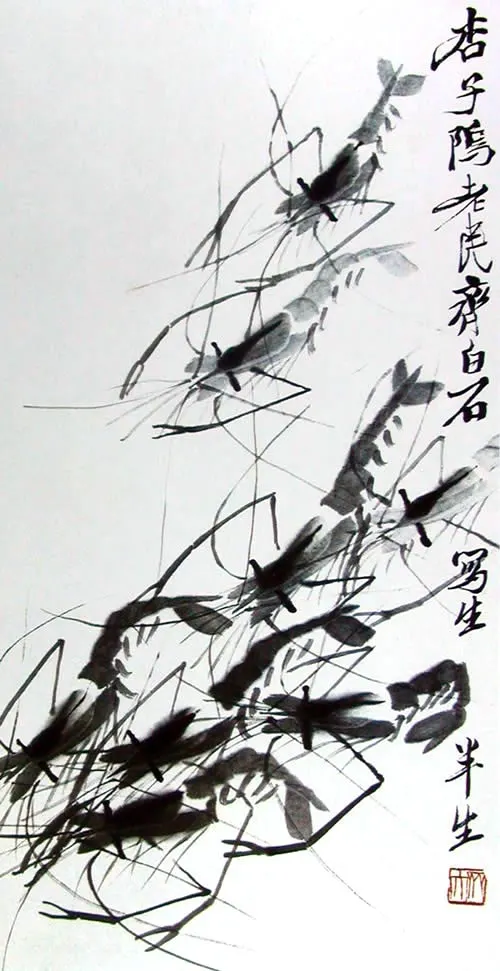 杏子隖老民齊白石 写生 半生